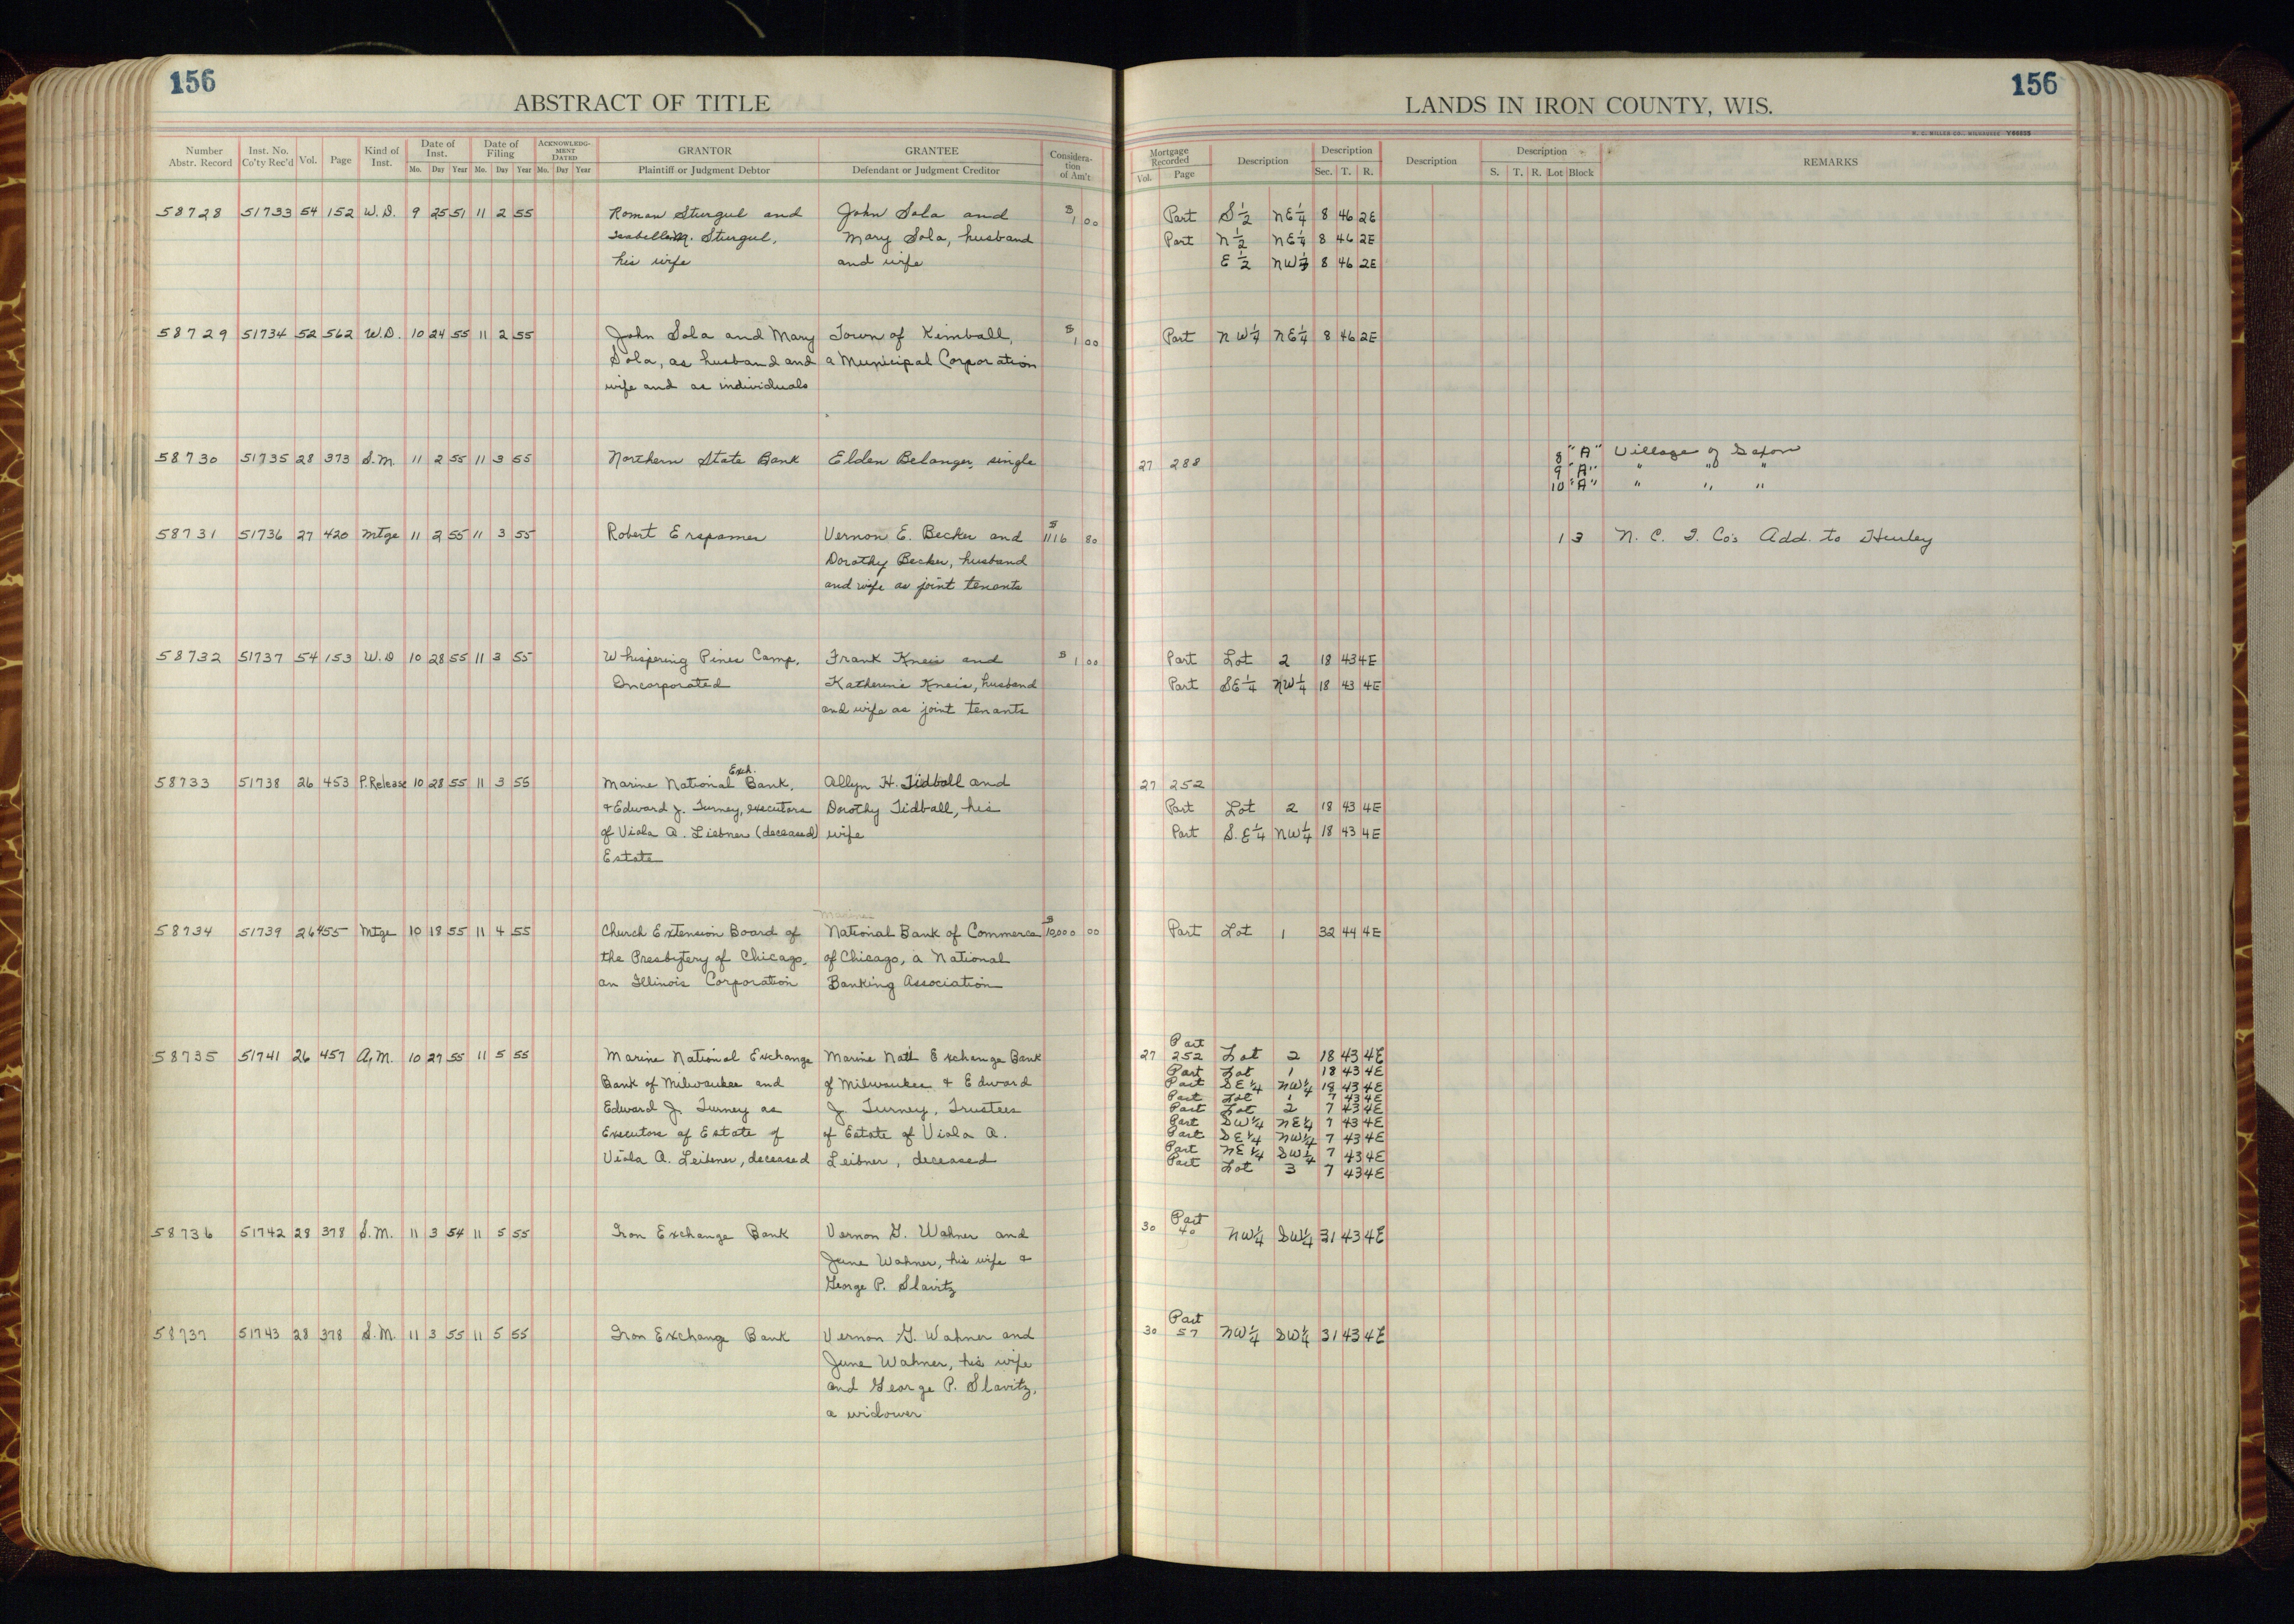 156
ABSTRACT OF TITLE
Number Abstr. Record Inst. No. Co'ty Rec'd Vol. Page Kind of Inst. Date of Inst. Mo. Day Year Date of Filing Mo. Day Year ACKNOWLEDGMENT DATED Mo. Day Year GRANTOR Plaintiff or Judgment Debtor GRANTEE Defendant or Judgment Creditor Consideration of Am't
58728 51733 54 152 W.D. 9 25 51 11 2 55 Roman Sturgul and John Sola and $1 00
Isabelle M. Sturgul, Mary Sola, husband
his wife and wife
58729 51734 52 562 W.D. 10 24 55 11 2 55 John Sola and Mary Town of Kimball, $1 00
Sola, as husband and a Municipal Corporation
wife and as individuals
58730 51735 28 373 S.M. 11 2 55 11 3 55 Northern State Bank Elden Belanger, single
58731 51736 27 420 Mtge 11 2 55 11 3 55 Robert Erspamer Vernon E. Becker and $1116 80
Dorothy Becker, husband
and wife as joint tenants
58732 51737 54 153 W.D 10 28 55 11 3 55 Whispering Pines Camp, Frank Kneis and $1 00
Incorporated Katherine Kneis, husband
and wife as joint tenants
58733 51738 26 453 P.Release 10 28 55 11 3 55 Marine National Exch. Bank, Allyn H. Tidball and
& Edward J. Turney, executors Dorothy Tidball, his
of Viola A. Liebner (deceased) wife
Estate
Marine
58734 51739 26 455 Mtge 10 18 55 11 4 55 Church Extension Board of National Bank of Commerce $10,000 00
the Presbytery of Chicago, of Chicago, a National
an Illinois Corporation Banking Association
58735 51741 26 457 A.M. 10 27 55 11 5 55 Marine National Exchange Marine Natl Exchange Bank
Bank of Milwaukee and of Milwaukee & Edward
Edward J. Turney as J. Turney, Trustees
Executors of Estate of of Estate of Viola A.
Viola A. Leibner, deceased Leibner, deceased
58736 51742 28 378 S.M. 11 3 54 11 5 55 Iron Exchange Bank Vernon G. Wahner and
June Wahner, his wife &
George P. Slavitz
58737 51743 28 378 S.M. 11 3 55 11 5 55 Iron Exchange Bank Vernon G. Wahner and
June Wahner, his wife
and George P. Slavitz,
a widower
156
LANDS IN IRON COUNTY, WIS.
Mortgage Recorded Vol. Page Description Description Sec. T. R. Description Description S. T. R. Lot Block REMARKS
Part S½ NE¼ 8 46 2E
Part N½ NE¼ 8 46 2E
E½ NW¼ 8 46 2E
Part NW¼ NE¼ 8 46 2E
27 288 8 "A" Village of Saxon
9 "A" " " "
10 "A" " " "
1 3 N. C. I. Co's Add. to Hurley
Part Lot 2 18 43 4E
Part SE¼ NW¼ 18 43 4E
27 252
Part Lot 2 18 43 4E
Part S.E¼ NW¼ 18 43 4E
Part Lot 1 32 44 4E
Part
27 252 Lot 2 18 43 4E
Part Lot 1 18 43 4E
Part SE¼ NW¼ 18 43 4E
Part Lot 1 7 43 4E
Part Lot 2 7 43 4E
Part SW¼ NE¼ 7 43 4E
Part SE¼ NW¼ 7 43 4E
Part NE¼ SW¼ 7 43 4E
Part Lot 3 7 43 4E
Part
30 40 NW¼ SW¼ 31 43 4E
Part
30 57 NW¼ SW¼ 31 43 4E